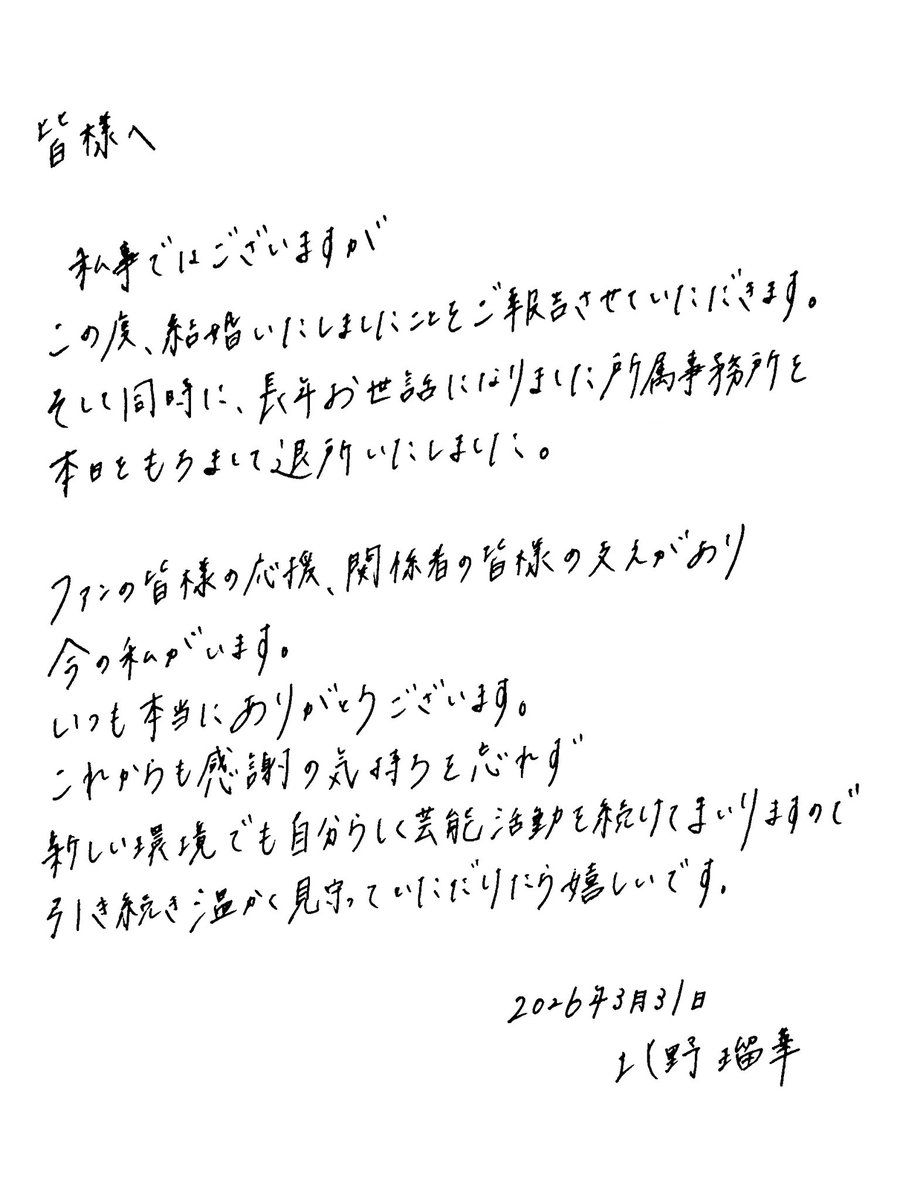 皆様へ
私事ではございますが
この度、結婚いたしましたことをご報告させていただきます。
そして同時に、長年お世話になりました所属事務所を
本日をもちまして退所いたしました。
ファンの皆様の応援、関係者の皆様の支えがあり
今の私がいます。
いつも本当にありがとうございます。
これからも感謝の気持ちを忘れず
新しい環境でも自分らしく芸能活動を続けてまいりますので
引き続き温かく見守っていただけたら嬉しいです。
2026年3月31日
北野瑠華